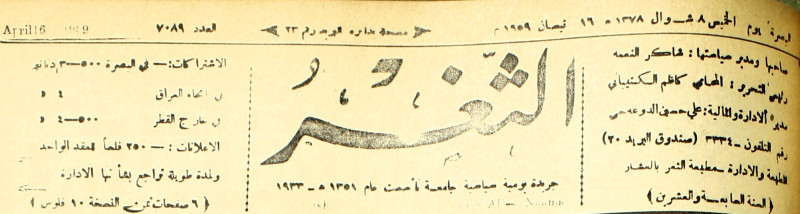 البصرة يوم الخميس ٨ شوال ١٣٧٨ هـ ١٦ نيسان ١٩٥٩ م
مسجلة بدائرة البريد رقم ٢٣
العدد ٧٠٨٩
April 16
صاحبها ومدير سياستها: شاكر النعمه
رئيس التحرير: المحامي كاظم الكشيباني
مدير الادارة والمالية: علي حسين
رقم التلفون — ٣٣٣٤ (صندوق البريد ٢٠)
المطبعة والادارة — مطبعة الثغر بالعشار
(السنة السابعة والعشرين)
الثغر
جريدة يومية سياسية جامعة تأسست عام ١٣٥١ هـ - ١٩٣٣
الاشتراكات: — في البصرة ٥٠٠—٣ دنانير
في انحاء العراق ٤ »
في خارج القطر ٥٠٠—٤ »
الاعلانات: — ٢٥٠ فلساً للعقد الواحد
ولمدة طويلة تراجع بشأنها الادارة
(٦ صفحات ثمن النسخة ١٠ فلوس)